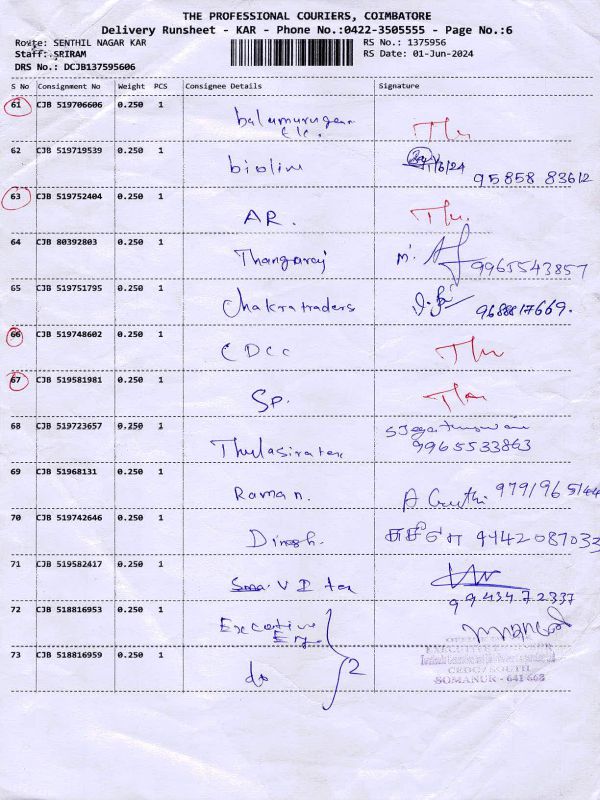 THE PROFESSIONAL COURIERS, COIMBATORE
Delivery Runsheet - KAR - Phone No.:0422-3505555 - Page No.:6
Route: SENTHIL NAGAR KAR RS No.: 1375956
Staff: SRIRAM RS Date: 01-Jun-2024
DRS No.: DCJB137595606
S No Consignment No Weight PCS Consignee Details Signature
61 CJB 519706606 0.250 1 balamurugan
62 CJB 519719539 0.250 1 bioline 1/6/24 95858 83612
63 CJB 519752404 0.250 1 AR.
64 CJB 80392803 0.250 1 Thangaraj 9965543857
65 CJB 519751795 0.250 1 Chakratraders 9688817669.
66 CJB 519748602 0.250 1 CDCC
67 CJB 519581981 0.250 1 SP.
68 CJB 519723657 0.250 1 9965533863
69 CJB 51968131 0.250 1 Raman. 9791965144
70 CJB 519742646 0.250 1 Dinesh. 9442087033
71 CJB 519582417 0.250 1 99.434.7 2337
72 CJB 518816953 0.250 1 Executive
Eng. 2
73 CJB 518816959 0.250 1 do
SOMANUR - 641 668